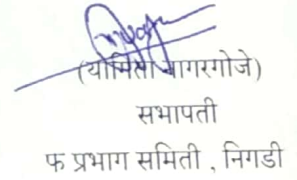 (योगिता नागरगोजे)
सभापती
फ प्रभाग समिती , निगडी